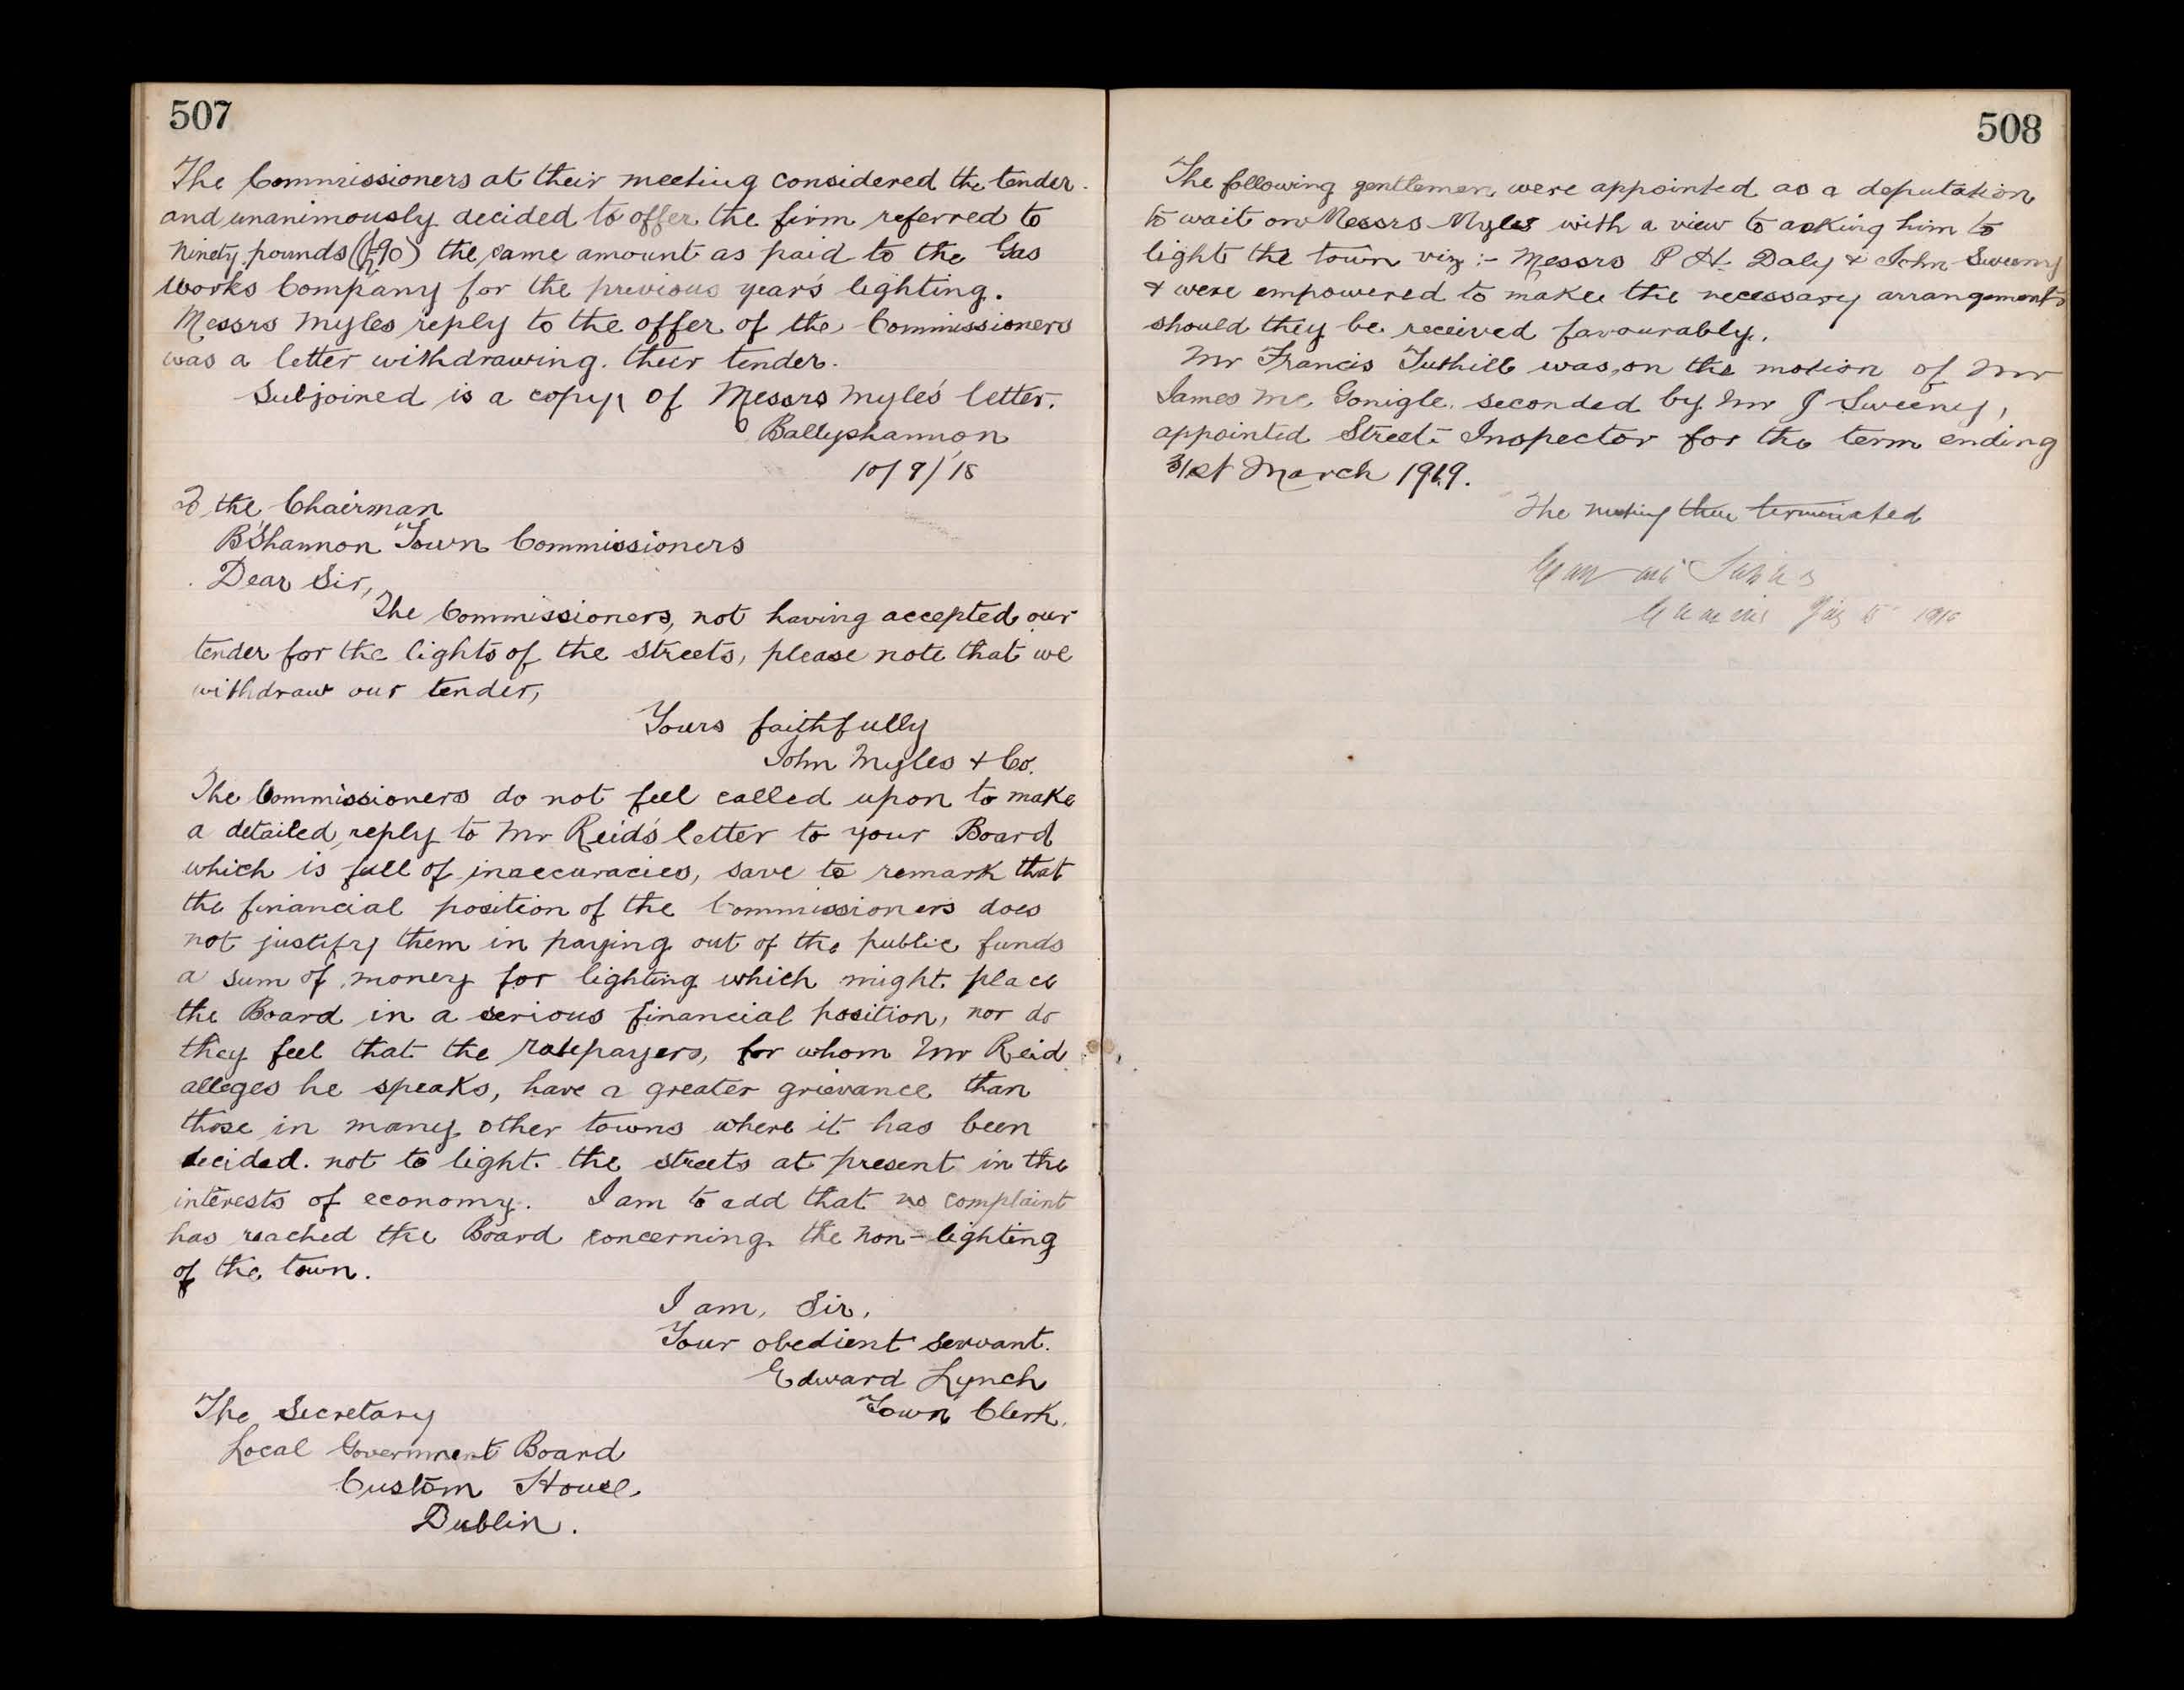 507
The Commissioners at their meeting considered the tender.
and unanimously decided to offer the firm referred to
Ninety pounds (£90) the same amount as paid to the Gas
Works Company for the previous year's lighting.
Messrs Myles reply to the offer of the Commissioners
was a letter withdrawing their tender.
Subjoined is a copy of Messrs Myles' letter.
Ballyshannon
10/9/18
To the Chairman
B'Shannon Town Commissioners
Dear Sir,
The Commissioners, not having accepted our
tender for the lights of the streets, please note that we
withdraw our tender,
Yours faithfully
John Myles & Co.
The Commissioners do not feel called upon to make
a detailed reply to Mr Reid's letter to your Board
which is full of inaccuracies, save to remark that
the financial position of the Commissioners does
not justify them in paying out of the public funds
a sum of money for lighting which might place
the Board in a serious financial position, nor do
they feel that the ratepayers, for whom Mr Reid
alleges he speaks, have a greater grievance than
those in many other towns where it has been
decided not to light the streets at present in the
interests of economy. I am to add that no complaint
has reached the Board concerning the non-lighting
of the town.
I am, Sir,
Your obedient servant.
Edward Lynch
Town Clerk.
The Secretary
Local Government Board
Custom House,
Dublin.
508
The following gentlemen were appointed as a deputation
to wait on Messrs Myles with a view to asking him to
light the town viz :- Messrs P H Daly & John Sweeny
& were empowered to make the necessary arrangements
should they be received favourably.
Mr Francis Tuthill was, on the motion of Mr
James Mc Gonigle, seconded by Mr J Sweeney,
appointed Street Inspector for the term ending
31st March 1919.
The meeting then terminated